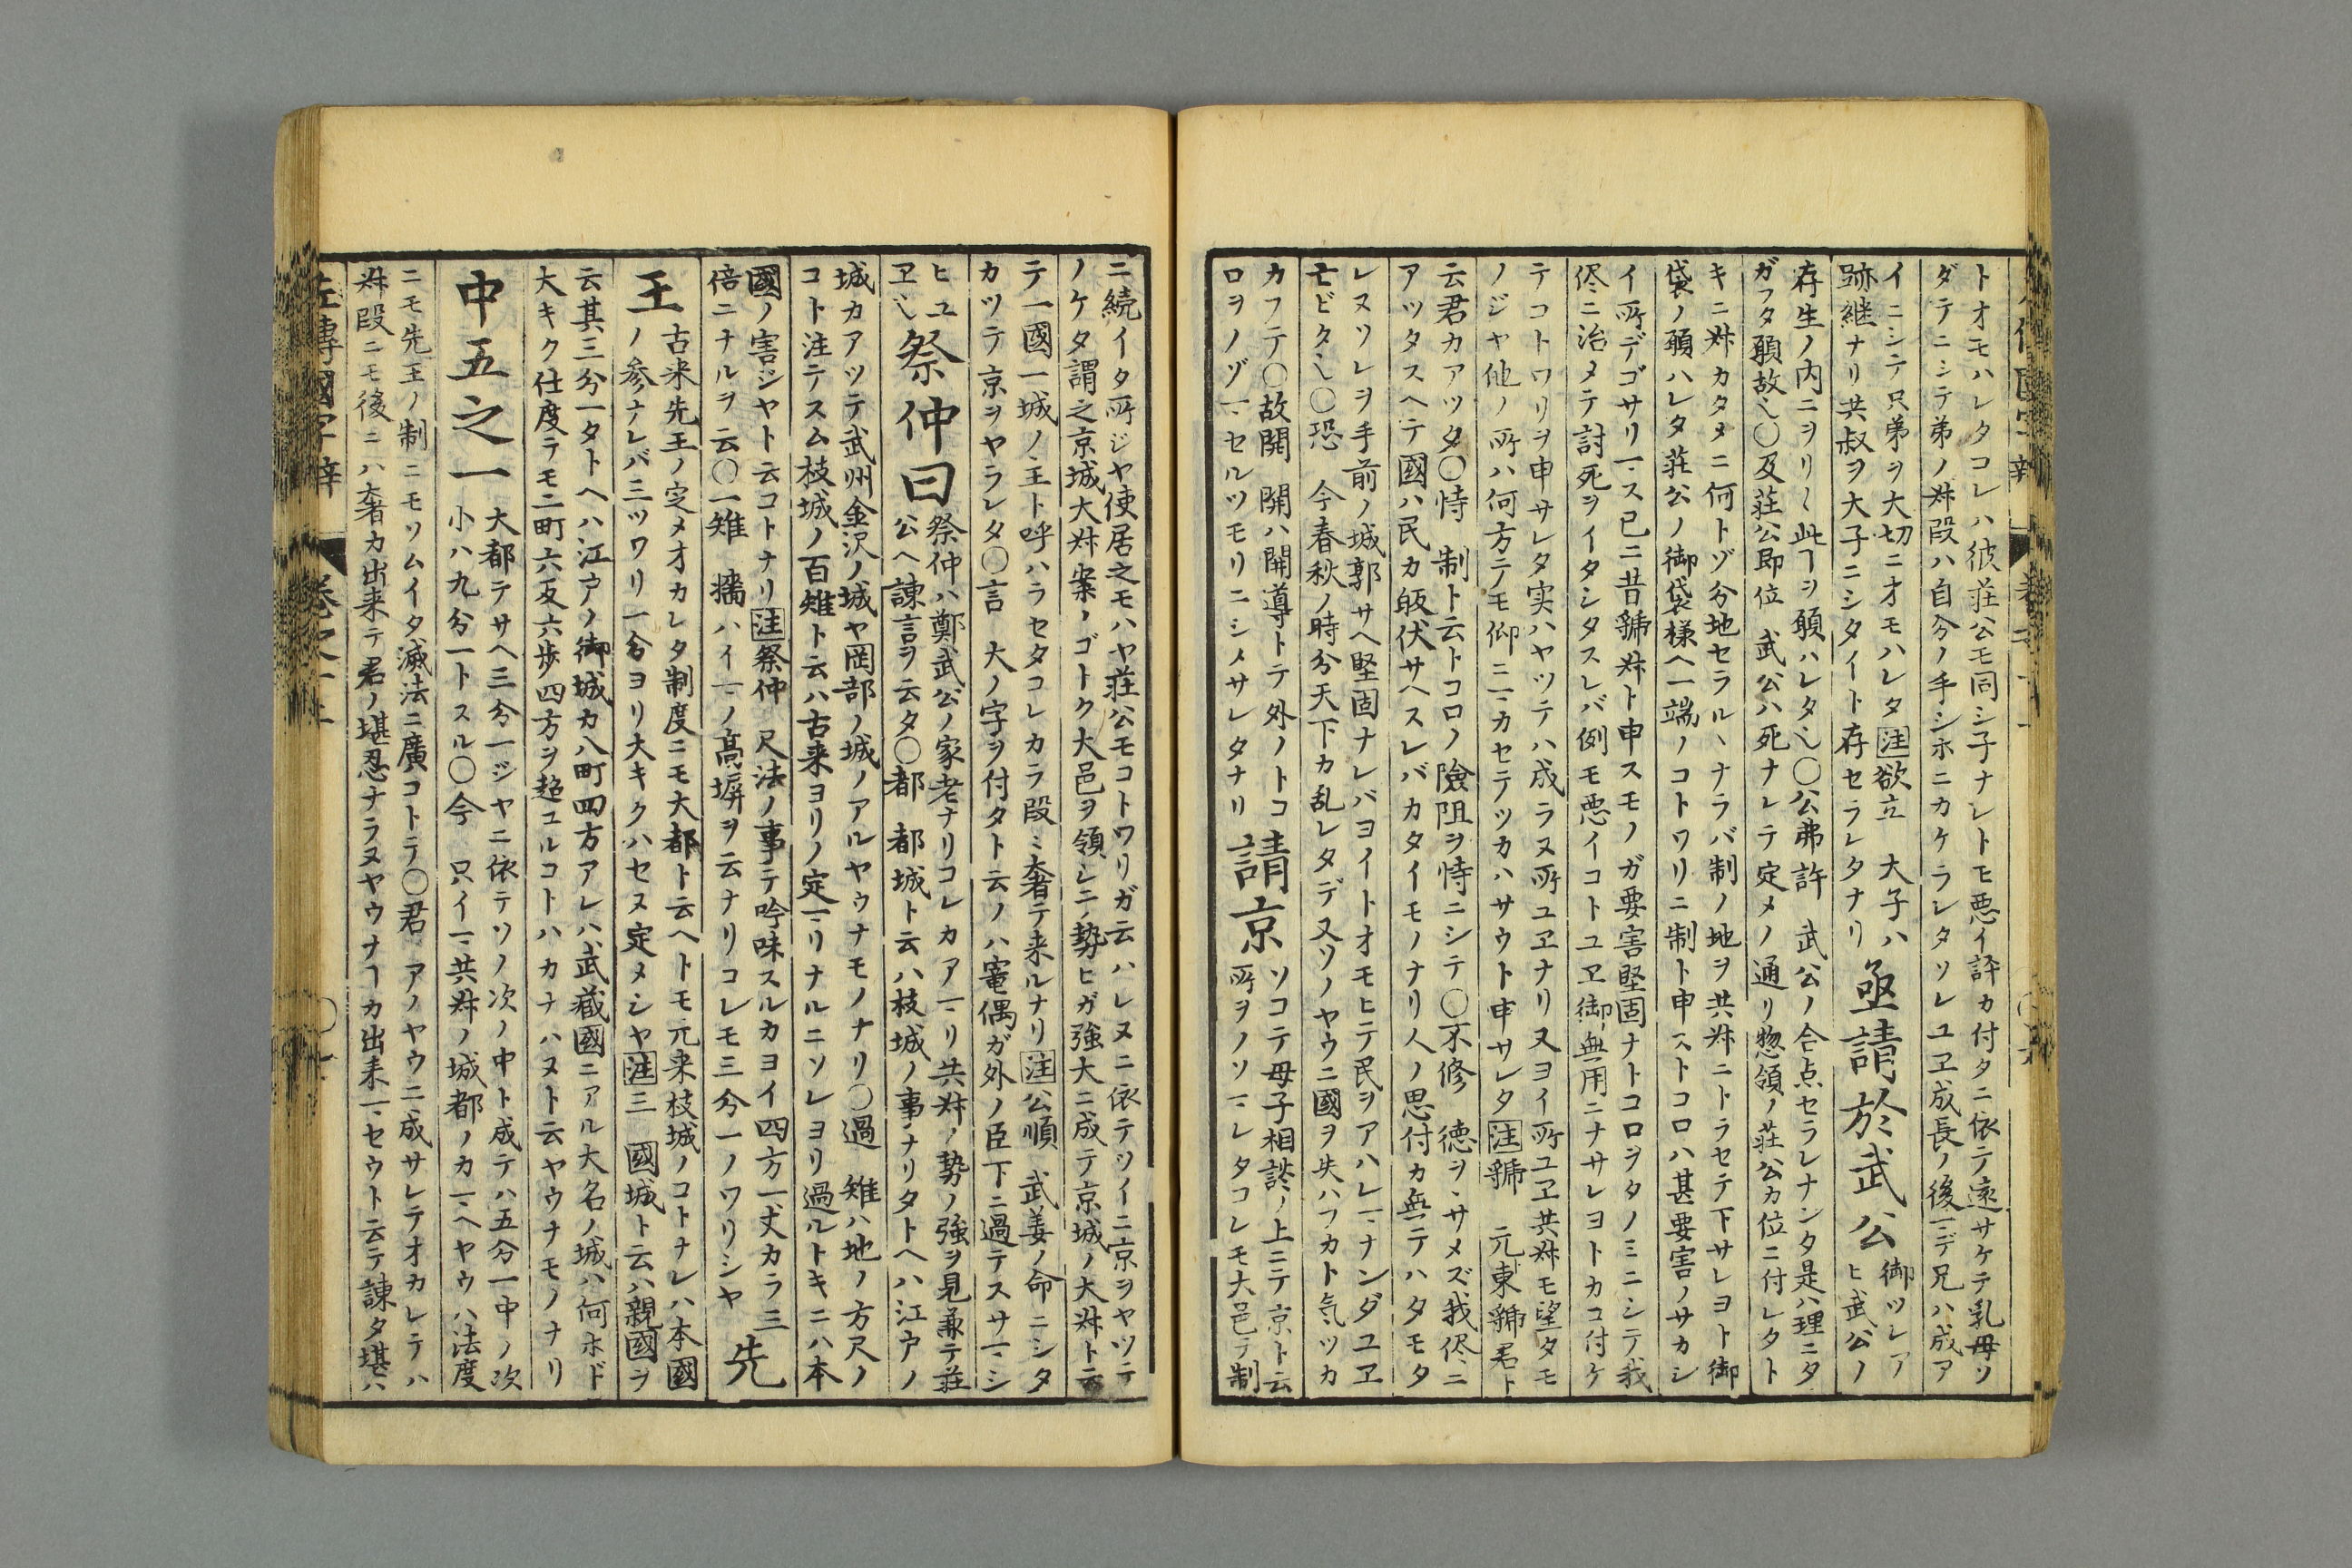 トオモハレタコレハ彼荘公モ同シ子ナレトモ悪イ評カ付タニ依テ遠サケテ乳母ソ
ダテニシテ弟ノ叔段ハ自分ノ手シホニカケラレタソレユヱ成長ノ後マデ兄ハ成ア
イニシテ只弟ヲ大切ニオモハレタ注欲立 大子ハ
跡継ナリ共叔ヲ大子ニシタイト存セラレタナリ
亟請於武公
御ツレア
ヒ武公ノ
存生ノ内ニヲリ〱此ヿヲ願ハレタ也〇公弗許 武公ノ合点セラレナンタ是ハ理ニタ
ガフタ願故也〇及荘公即位 武公ハ死ナレテ定メノ通リ惣領ノ荘公カ位ニ付レタト
キニ叔カタメニ何トゾ分地セラルヽナラバ制ノ地ヲ共叔ニトラセテ下サレヨト御
袋ノ願ハレタ荘公ノ御袋様ヘ一端ノコトワリニ制ト申ストコロハ甚要害ノサカシ
イ所デゴサリマス已ニ昔虢叔ト申スモノガ要害堅固ナトコロヲタノミニシテ我
侭ニ治メテ討死ヲイタシタスレバ例モ悪イコトユヱ御無用ニナサレヨトカコ付ケ
テコトワリヲ申サレタ実ハヤツテハ成ラヌ所ユヱナリ又ヨイ所ユヱ共叔モ望タモ
ノジヤ他ノ所ハ何方テモ仰ニマカセテツカハサウト申サレタ注虢 元東虢君ト
云君カアツタ〇恃 制ト云トコロノ險阻ヲ恃ニシテ〇不修 徳ヲヽサメズ我侭ニ
アツタスヘテ國ハ民カ皈伏サヘスレバカタイモノナリ人ノ思付カ無テハタモタ
レヌソレヲ手前ノ城郭サヘ堅固ナレバヨイトオモヒテ民ヲアハレマナンダユヱ
亡ビタ也〇恐 今春秋ノ時分天下カ乱レタデ又ソノヤウニ國ヲ失ハフカト気ツカ
カフテ〇故開 開ハ開導トテ外ノトコ
ロヲノゾマセルツモリニシメサレタナリ
請京
ソコテ母子相談ノ上ニテ京ト云
所ヲノソマレタコレモ大邑テ制
ニ続イタ所ジヤ使居之モハヤ荘公モコトワリガ云ハレヌニ依テツイニ京ヲヤツテ
ノケタ謂之京城大叔案ノゴトク大邑ヲ領シニノ勢ヒガ強大ニ成テ京城ノ大叔ト云
テ一國一城ノ王ト呼ハラセタコレカラ段ミ奢テ来ルナリ注公順 武姜ノ命ニシタ
カツテ京ヲヤラレタ〇言 大ノ字ヲ付タト云ノハ寵偶ガ外ノ臣下ニ過テスサマシ
ヒユ
ヱ也
祭仲曰
祭仲ハ鄭武公ノ家老ナリコレカアマリ共叔ノ勢ノ強ヲ見兼テ荘
公ヘ諫言ヲ云タ〇都 都城ト云ハ枝城ノ事ナリタトヘハ江戸ノ
城カアツテ武州金沢ノ城ヤ岡部ノ城ノアルヤウナモノナリ〇過 雉ハ地ノ方尺ノ
コト注テスム枝城ノ百雉ト云ハ古来ヨリノ定マリナルニソレヨリ過ルトキニハ本
國ノ害ジヤト云コトナリ注祭仲 尺法ノ事テ吟味スルカヨイ四方一丈カラ三
倍ニナルヲ云〇一雉 墻ハイマノ高塀ヲ云ナリコレモ三分一ノワリシヤ
先
王
古来先王ノ定メオカレタ制度ニモ大都ト云ヘトモ元来枝城ノコトナレハ本國
ノ参ナレバ三ツワリ一分ヨリ大キクハセヌ定メシヤ注三 國城ト云ハ親國ヲ
云其三分一タトヘハ江戸ノ御城カ八町四方アレハ武藏國ニアル大名ノ城ハ何ホド
大キク仕度テモ二町六反六歩四方ヲ超ユルコトハカナハヌト云ヤウナモノナリ
中五之一
大都テサヘ三分一ジヤニ依テソノ次ノ中ト成テハ五分一中ノ次
小ハ九分一トスル〇今 只イマ共叔ノ城都ノカマヘヤウハ法度
ニモ先王ノ制ニモソムイタ滅法ニ廣コトテ〇君 アノヤウニ成サレテオカレテハ
叔段ニモ後ニハ奢カ出来テ君ノ堪忍ナラヌヤウナヿカ出来マセウト云テ諫タ堪ハ
左傳國字辯 巻之一上